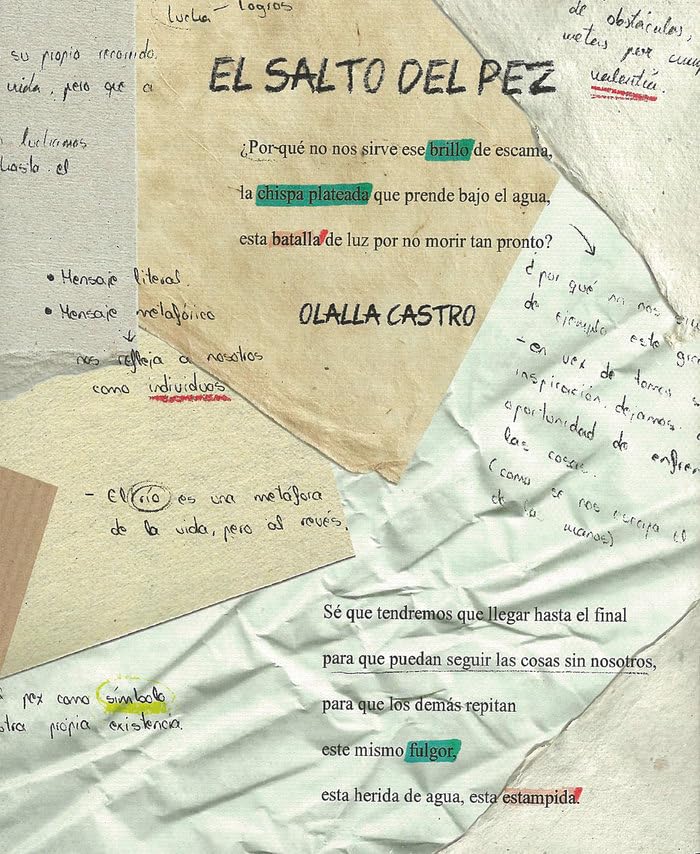 lucha - logros
su propio recorrido.
vida, pero que a
luchamos
hasta el
de obstáculos,
metas por
valentía.
EL SALTO DEL PEZ
¿Por qué no nos sirve ese brillo de escama,
la chispa plateada que prende bajo el agua,
esta batalla de luz por no morir tan pronto?
OLALLA CASTRO
• Mensaje literal.
• Mensaje metafórico
nos refleja a nosotros
como individuos
¿por qué no nos
de ejemplo este
- en vez de
inspiración. dejamos
oportunidad de
las cosas.
(como se nos escapa
de las manos)
- El río es una metáfora
de la vida, pero al revés.
Sé que tendremos que llegar hasta el final
para que puedan seguir las cosas sin nosotros,
para que los demás repitan
este mismo fulgor,
esta herida de agua, esta estampida.
pez como símbolo
propia existencia.